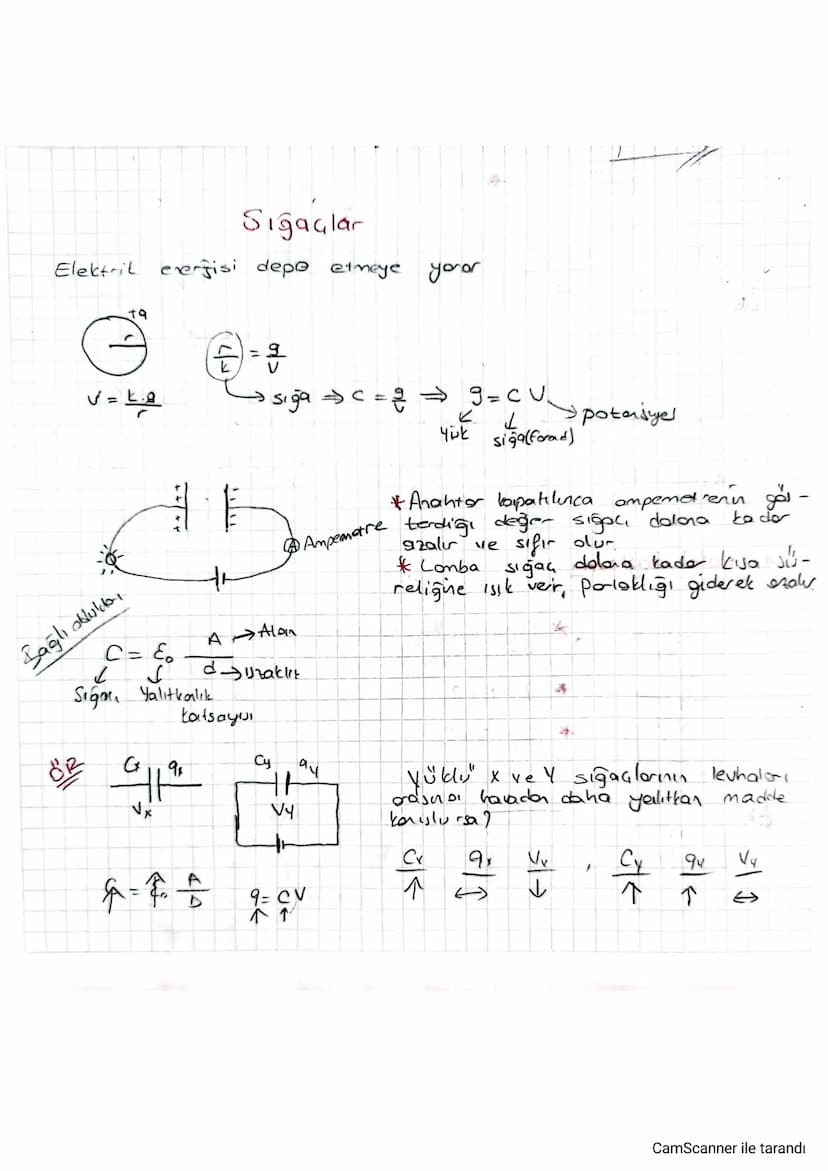 Sığaçlar
Elektrik enerjisi depo etmeye yarar
+q
r
V = k.q / r
r/k = q/V
→ sığa ⇒ C = q/V ⇒ q = C V → potansiyel
yük sığa(Farad)
+ + + - - -
A Ampemetre
* Anahtar kapatılınca ampemetrenin gös-
terdiği değer sığacı dolana kadar
azalır ve sıfır olur
* Lamba sığaç dolana kadar kısa sü-
religine ışık verir, Parlaklığı giderek azalır
Bağlı oldukları
C = ε₀ A/d
A → Alan
d → uzaklık
Sığacı Yalıtkanlık
katsayısı
ÖR
Cx qx
Vx
Cy qy
Vy
Yüklü x ve Y sığaçlarının levhaları
arasındaı havadan daha yalıtkan madde
konulursa?
Cx qx Vx , Cy qy Vy
↑ ↔ ↓ ↑ ↑ ↔
C↑ = ε₀↑ A/D
q = CV
↑ ↑
CamScanner ile tarandı